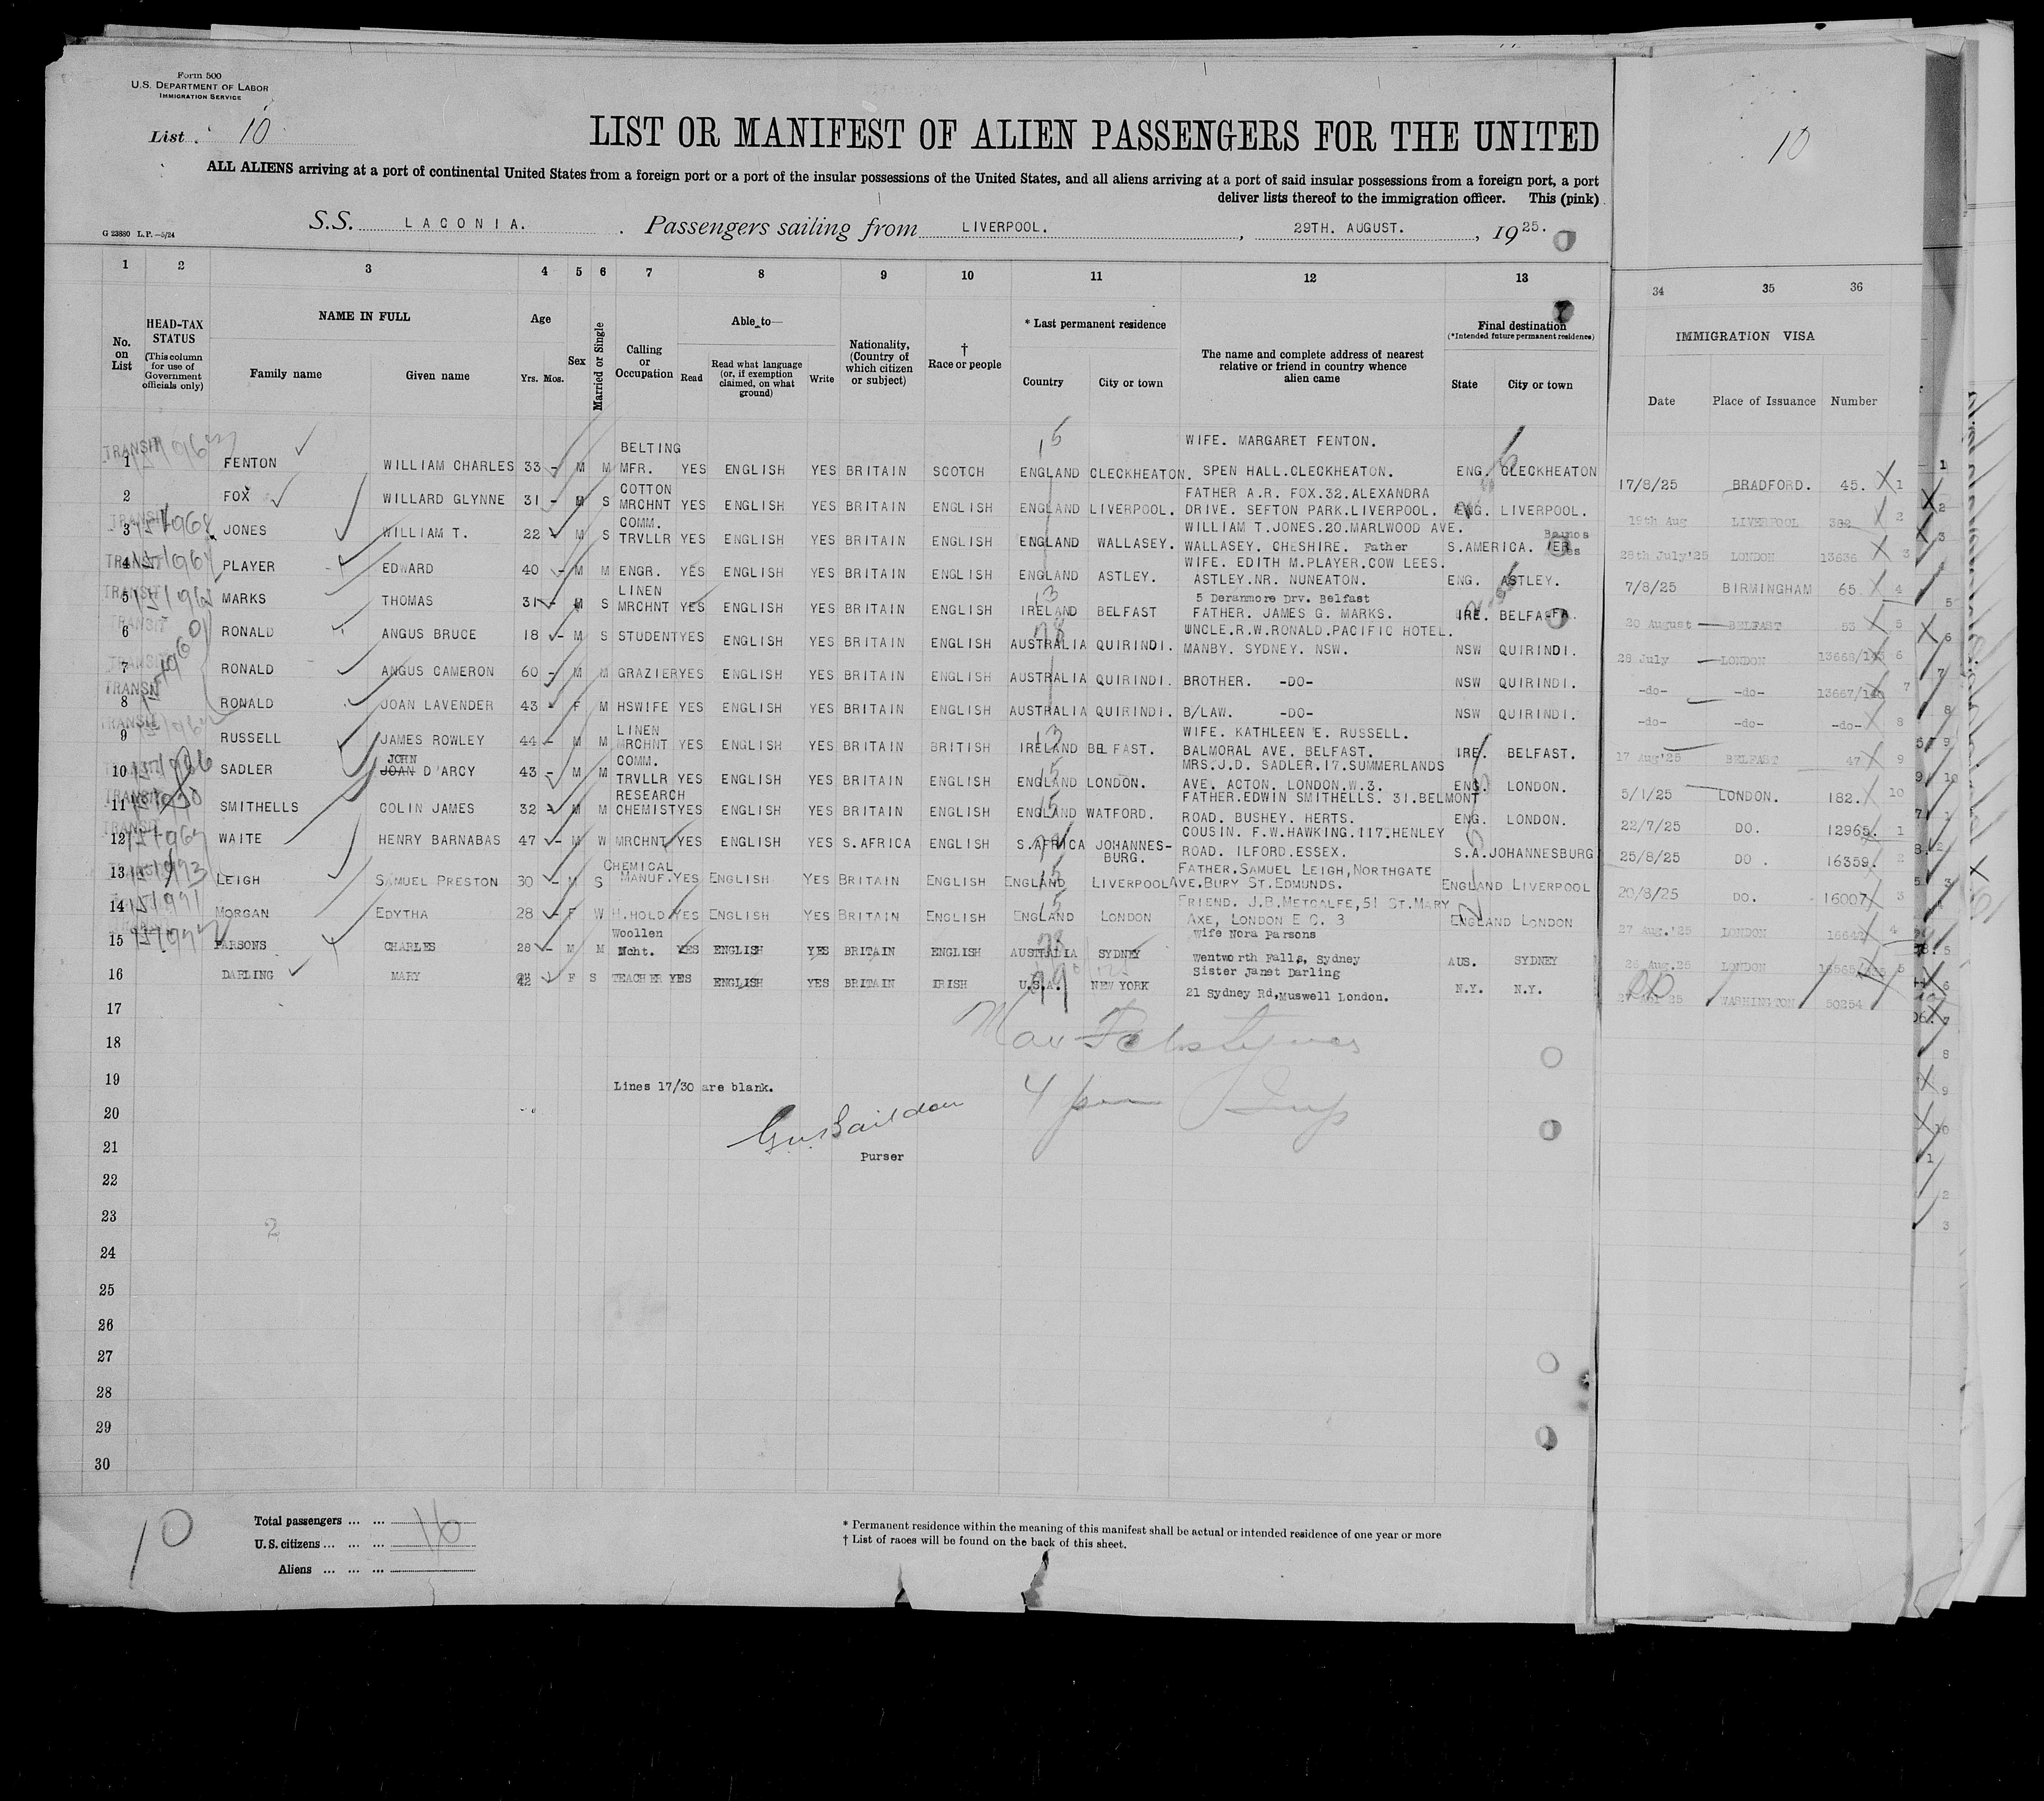 Form 500
U.S. DEPARTMENT OF LABOR
IMMIGRATION SERVICE
List 10
10
LIST OR MANIFEST OF ALIEN PASSENGERS FOR THE UNITED
ALL ALIENS arriving at a port of continental United States from a foreign port or a port of the insular possessions of the United States, and all aliens arriving at a port of said insular possessions from a foreign port, a port
deliver lists thereof to the immigration officer. This (pink)
G 23880 L.P.—5/24
S.S. LACONIA. Passengers sailing from LIVERPOOL. , 29TH. AUGUST. , 1925.
1 2 3 4 5 6 7 8 9 10 11 12 13 34 35 36
No. on List
HEAD-TAX STATUS (This column for use of Government officials only)
NAME IN FULL
Family name Given name
Age
Yrs. Mos.
Sex
Married or Single
Calling or Occupation
Able to—
Read Read what language (or, if exemption claimed, on what ground) Write
Nationality, (Country of which citizen or subject)
† Race or people
* Last permanent residence
Country City or town
The name and complete address of nearest relative or friend in country whence alien came
Final destination (*Intended future permanent residence)
State City or town
IMMIGRATION VISA
Date Place of Issuance Number
BELTING WIFE. MARGARET FENTON.
1 TRANSIT FENTON WILLIAM CHARLES 33 - M M MFR. YES ENGLISH YES BRITAIN SCOTCH ENGLAND CLECKHEATON. SPEN HALL.CLECKHEATON. ENG. CLECKHEATON 17/8/25 BRADFORD. 45. 1
COTTON FATHER A.R. FOX.32.ALEXANDRA
2 FOX WILLARD GLYNNE 31 - M S MRCHNT YES ENGLISH YES BRITAIN ENGLISH ENGLAND LIVERPOOL. DRIVE. SEFTON PARK.LIVERPOOL. ENG. LIVERPOOL. 19th Aug LIVERPOOL 382 2
COMM. WILLIAM T.JONES.20.MARLWOOD AVE.
3 JONES WILLIAM T. 22 M S TRVLLR YES ENGLISH YES BRITAIN ENGLISH ENGLAND WALLASEY. WALLASEY. CHESHIRE. Father S.AMERICA. 28th July'25 LONDON 13636 3
WIFE. EDITH M.PLAYER.COW LEES.
4 TRANSIT PLAYER EDWARD 40 - M M ENGR. YES ENGLISH YES BRITAIN ENGLISH ENGLAND ASTLEY. ASTLEY.NR. NUNEATON. ENG. ASTLEY. 7/8/25 BIRMINGHAM 65 4
LINEN 5 Deranmore Drv. Belfast
5 TRANSIT MARKS THOMAS 31 - M S MRCHNT YES ENGLISH YES BRITAIN ENGLISH IRELAND BELFAST FATHER. JAMES G. MARKS. IRE. BELFAST 20 August BELFAST 53 5
UNCLE.R.W.RONALD.PACIFIC HOTEL.
6 TRANSIT RONALD ANGUS BRUCE 18 - M S STUDENT YES ENGLISH YES BRITAIN ENGLISH AUSTRALIA QUIRINDI. MANBY. SYDNEY. NSW. NSW QUIRINDI. 28 July LONDON 6
7 TRANSIT RONALD ANGUS CAMERON 60 - M M GRAZIER YES ENGLISH YES BRITAIN ENGLISH AUSTRALIA QUIRINDI. BROTHER. -DO- NSW QUIRINDI. -do- -do- 7
8 TRANSIT RONALD JOAN LAVENDER 43 - F M HSWIFE YES ENGLISH YES BRITAIN ENGLISH AUSTRALIA QUIRINDI. B/LAW. -DO- NSW QUIRINDI. -do- -do- -do- 8
LINEN WIFE. KATHLEEN E. RUSSELL.
9 RUSSELL JAMES ROWLEY 44 - M M MRCHNT YES ENGLISH YES BRITAIN BRITISH IRELAND BELFAST. BALMORAL AVE. BELFAST. IRE. BELFAST. 17 Aug'25 BELFAST 47 9
JOHN COMM. MRS.J.D. SADLER.17.SUMMERLANDS
10 SADLER JOAN D'ARCY 43 - M M TRVLLR YES ENGLISH YES BRITAIN ENGLISH ENGLAND LONDON. AVE. ACTON. LONDON.W.3. ENG. LONDON. 5/1/25 LONDON. 182. 10
RESEARCH FATHER.EDWIN SMITHELLS. 31.BELMONT
11 SMITHELLS COLIN JAMES 32 - M M CHEMIST YES ENGLISH YES BRITAIN ENGLISH ENGLAND WATFORD. ROAD. BUSHEY. HERTS. ENG. LONDON. 22/7/25 DO. 12965. 1
COUSIN. F.W.HAWKING.117.HENLEY
12 WAITE HENRY BARNABAS 47 - M W MRCHNT YES ENGLISH YES S.AFRICA ENGLISH S.AFRICA JOHANNES-BURG. ROAD. ILFORD.ESSEX. S.A. JOHANNESBURG 25/8/25 DO. 16359. 2
CHEMICAL FATHER.SAMUEL LEIGH,NORTHGATE
13 LEIGH SAMUEL PRESTON 30 - M S MANUF. YES ENGLISH YES BRITAIN ENGLISH ENGLAND LIVERPOOL AVE.BURY ST.EDMUNDS. ENGLAND LIVERPOOL 20/8/25 DO. 16007 3
FRIEND. J.B.METCALFE,51 ST.MARY
14 MORGAN EDYTHA 28 - F W H.HOLD YES ENGLISH YES BRITAIN ENGLISH ENGLAND LONDON AXE, LONDON E C. 3 ENGLAND LONDON 27 Aug.'25 LONDON 16642 4
Woollen Wife Nora Parsons
15 PARSONS CHARLES 28 - M M Mcht. YES ENGLISH YES BRITAIN ENGLISH AUSTRALIA SYDNEY Wentworth Falls, Sydney AUS. SYDNEY 26 Aug.25 LONDON 5
Sister Janet Darling
16 DARLING MARY 42 F S TEACHER YES ENGLISH YES BRITAIN IRISH U.S.A. NEW YORK 21 Sydney Rd,Muswell London. N.Y. N.Y. WASHINGTON 50254
17
18
19 Lines 17/30 are blank.
20
21
Purser
22
23
2
24
25
26
27
28
29
30
10
Total passengers ... ... 16
U.S. citizens ... ... ...
Aliens ... ... ...
* Permanent residence within the meaning of this manifest shall be actual or intended residence of one year or more
† List of races will be found on the back of this sheet.